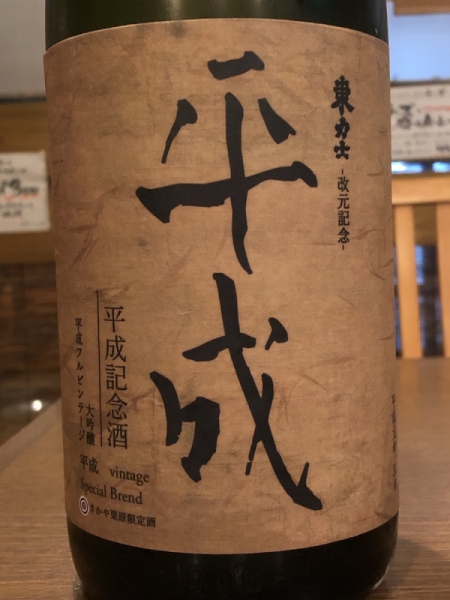 東力士
-改元記念-
平成
平成記念酒
大吟醸
平成フルビンテージ
平成 vintage
Special Brend
さかや栗原限定酒